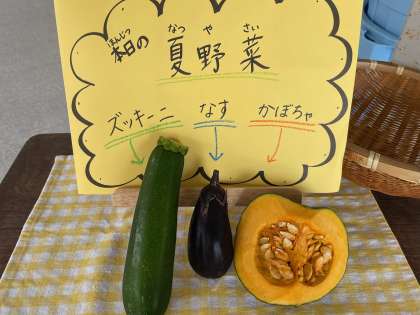 ほんじつ
本日の
なつ や さい
夏野菜
ズッキーニ なす かぼちゃ